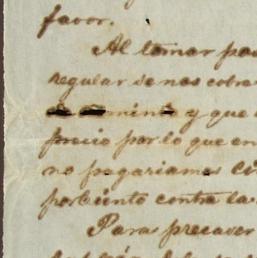 favor.
Al tomar pa
regular se nos cobra
y que
precio por lo que en
no pagariamos
porciento contra la
Para precaver